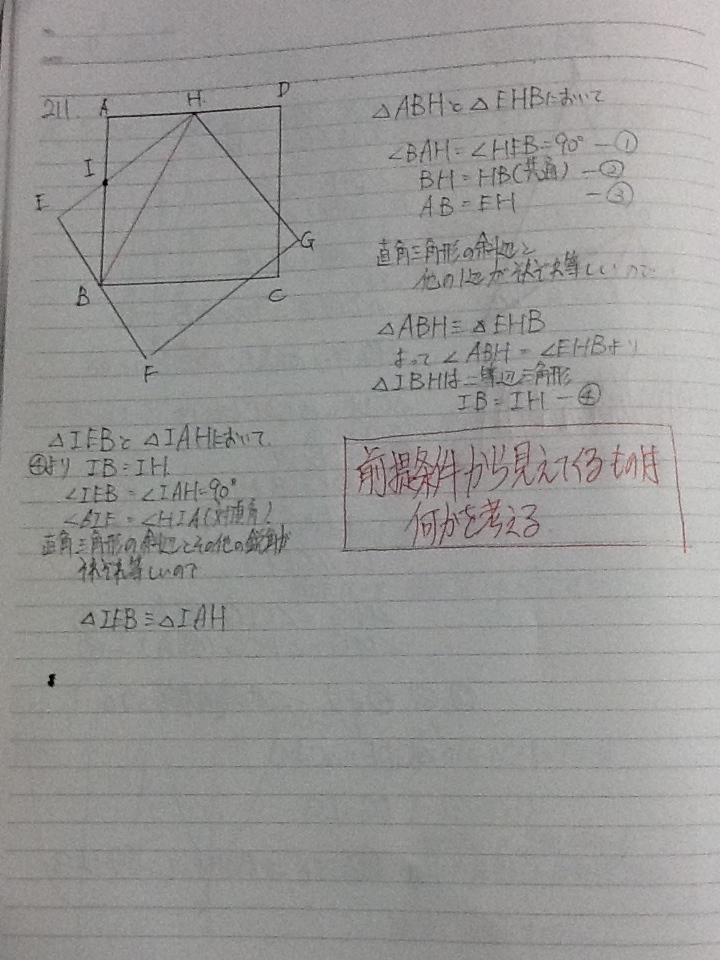 211.
A
H
D
I
E
G
B
C
F
△ABHと△EHBにおいて
∠BAH=∠HEB=90° ―①
BH=HB(共通) ―②
AB=EH ―③
直角三角形の斜辺と
他の1辺がそれぞれ等しいので
△ABH≡△EHB
よって∠ABH=∠EHBより
△IBHは二等辺三角形
IB=IH ―④
△IEBと△IAHにおいて
④より IB=IH
∠IEB=∠IAH=90°
∠BIE=∠HIA(対頂角)
直角三角形の斜辺とその他の鋭角が
それぞれ等しいので
△IEB≡△IAH
前提条件から見えてくるものは
何かを考える